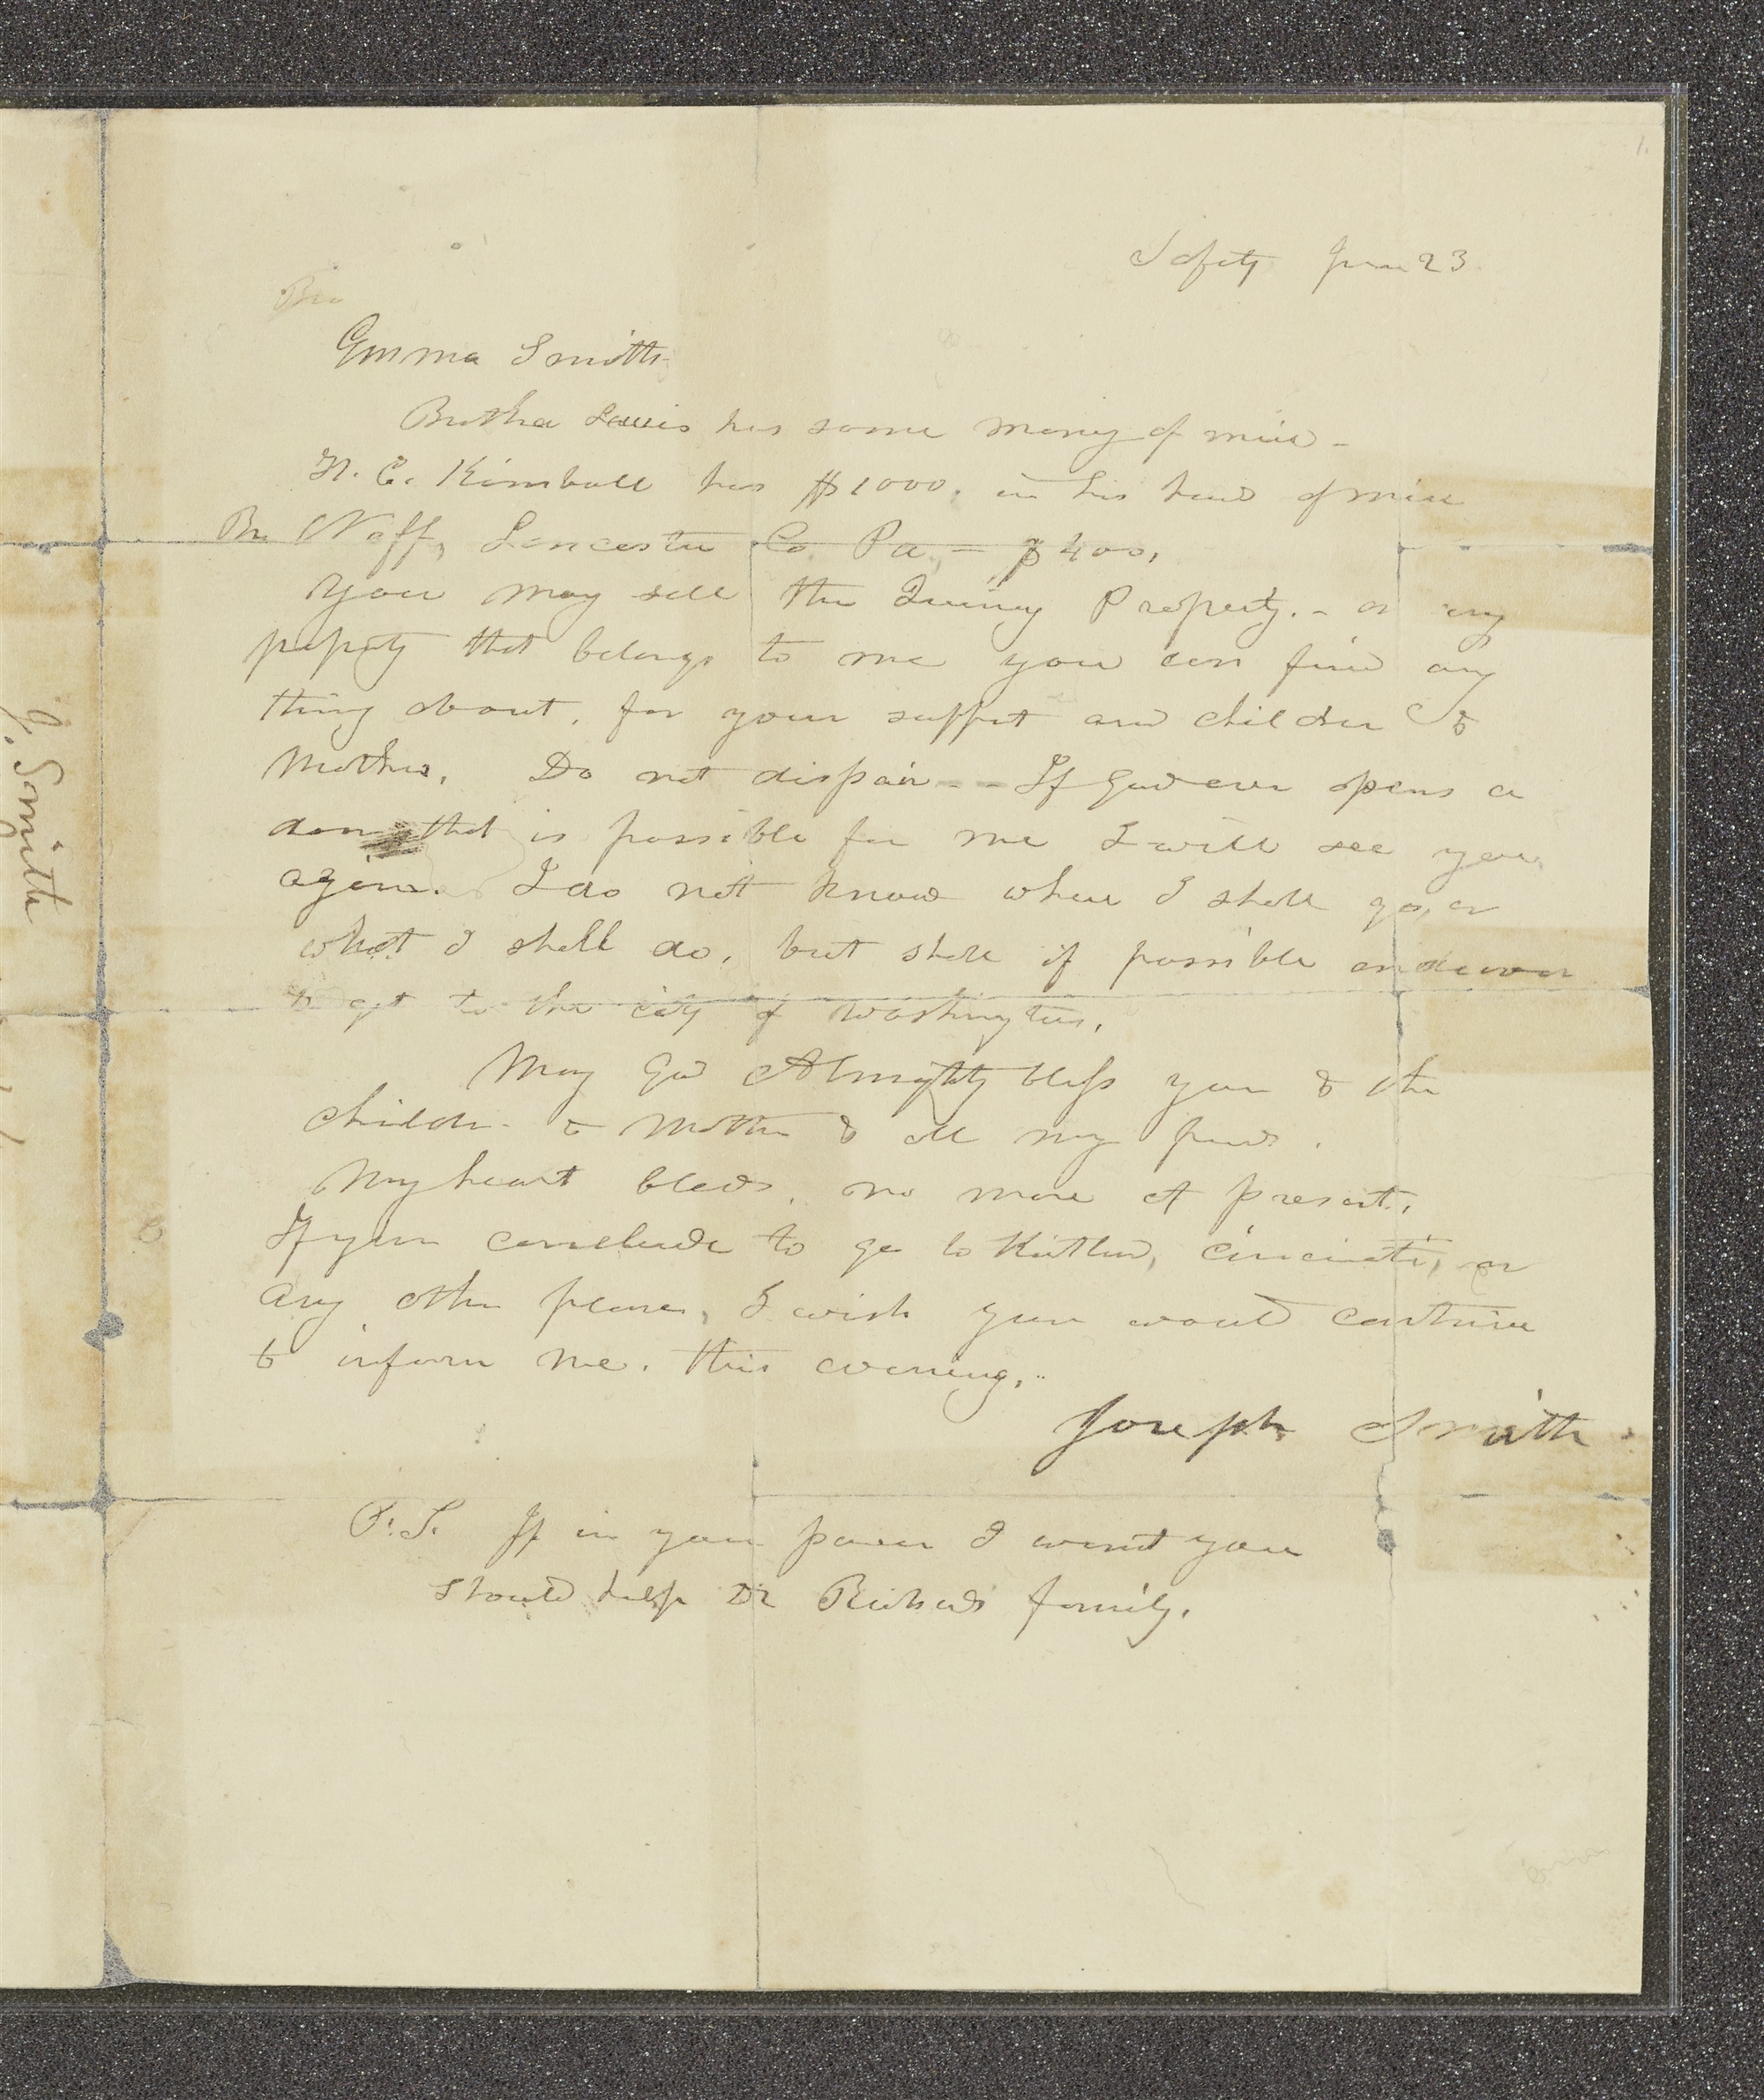 Safety June 23
Bro
Emma Smith
Brother Lewis has some money of mine -
H. C. Kimball has $1000. in his hand of mine
Br. Neff, Lancaster Co Pa, - $400,
You may sell the Quincy Property. - or any
property that belongs to me you can find any
thing about, for your support and children &
Mother. Do not dispair - - If god ever opens a
door that is possible for me I will see you
again. I do not know where I shall go, or
what I shall do, but shall if possible endeavor
to get to the city of Washington.
May God Almighty bless you & the
children - & Mother & all my friends.
My heart bleeds. no more at present.
If you conclude to go to Kirtland, Cincinati, or
any other place, I wish you would contrive
to inform me. this evening.
Joseph Smith
P.S. If in your power I want you
should help Dr Richards family.
J. Smith